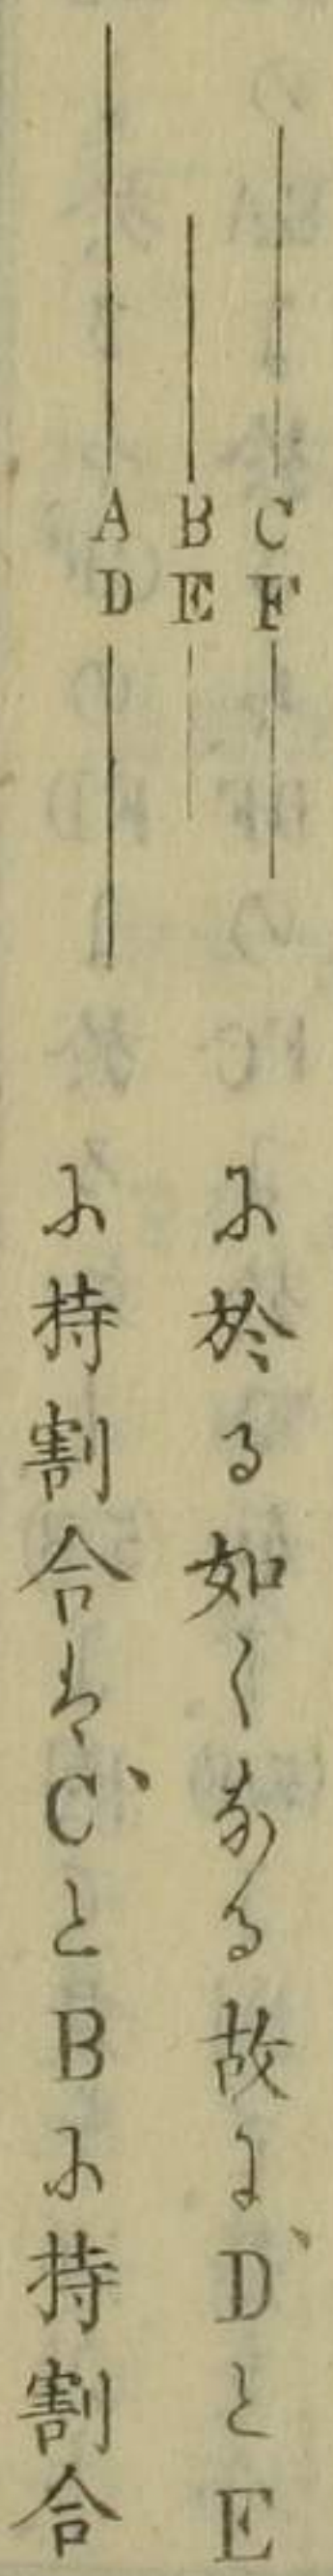 C B A
F E D
に於る如くなる故にDとE
に持割合はCとBに持割合